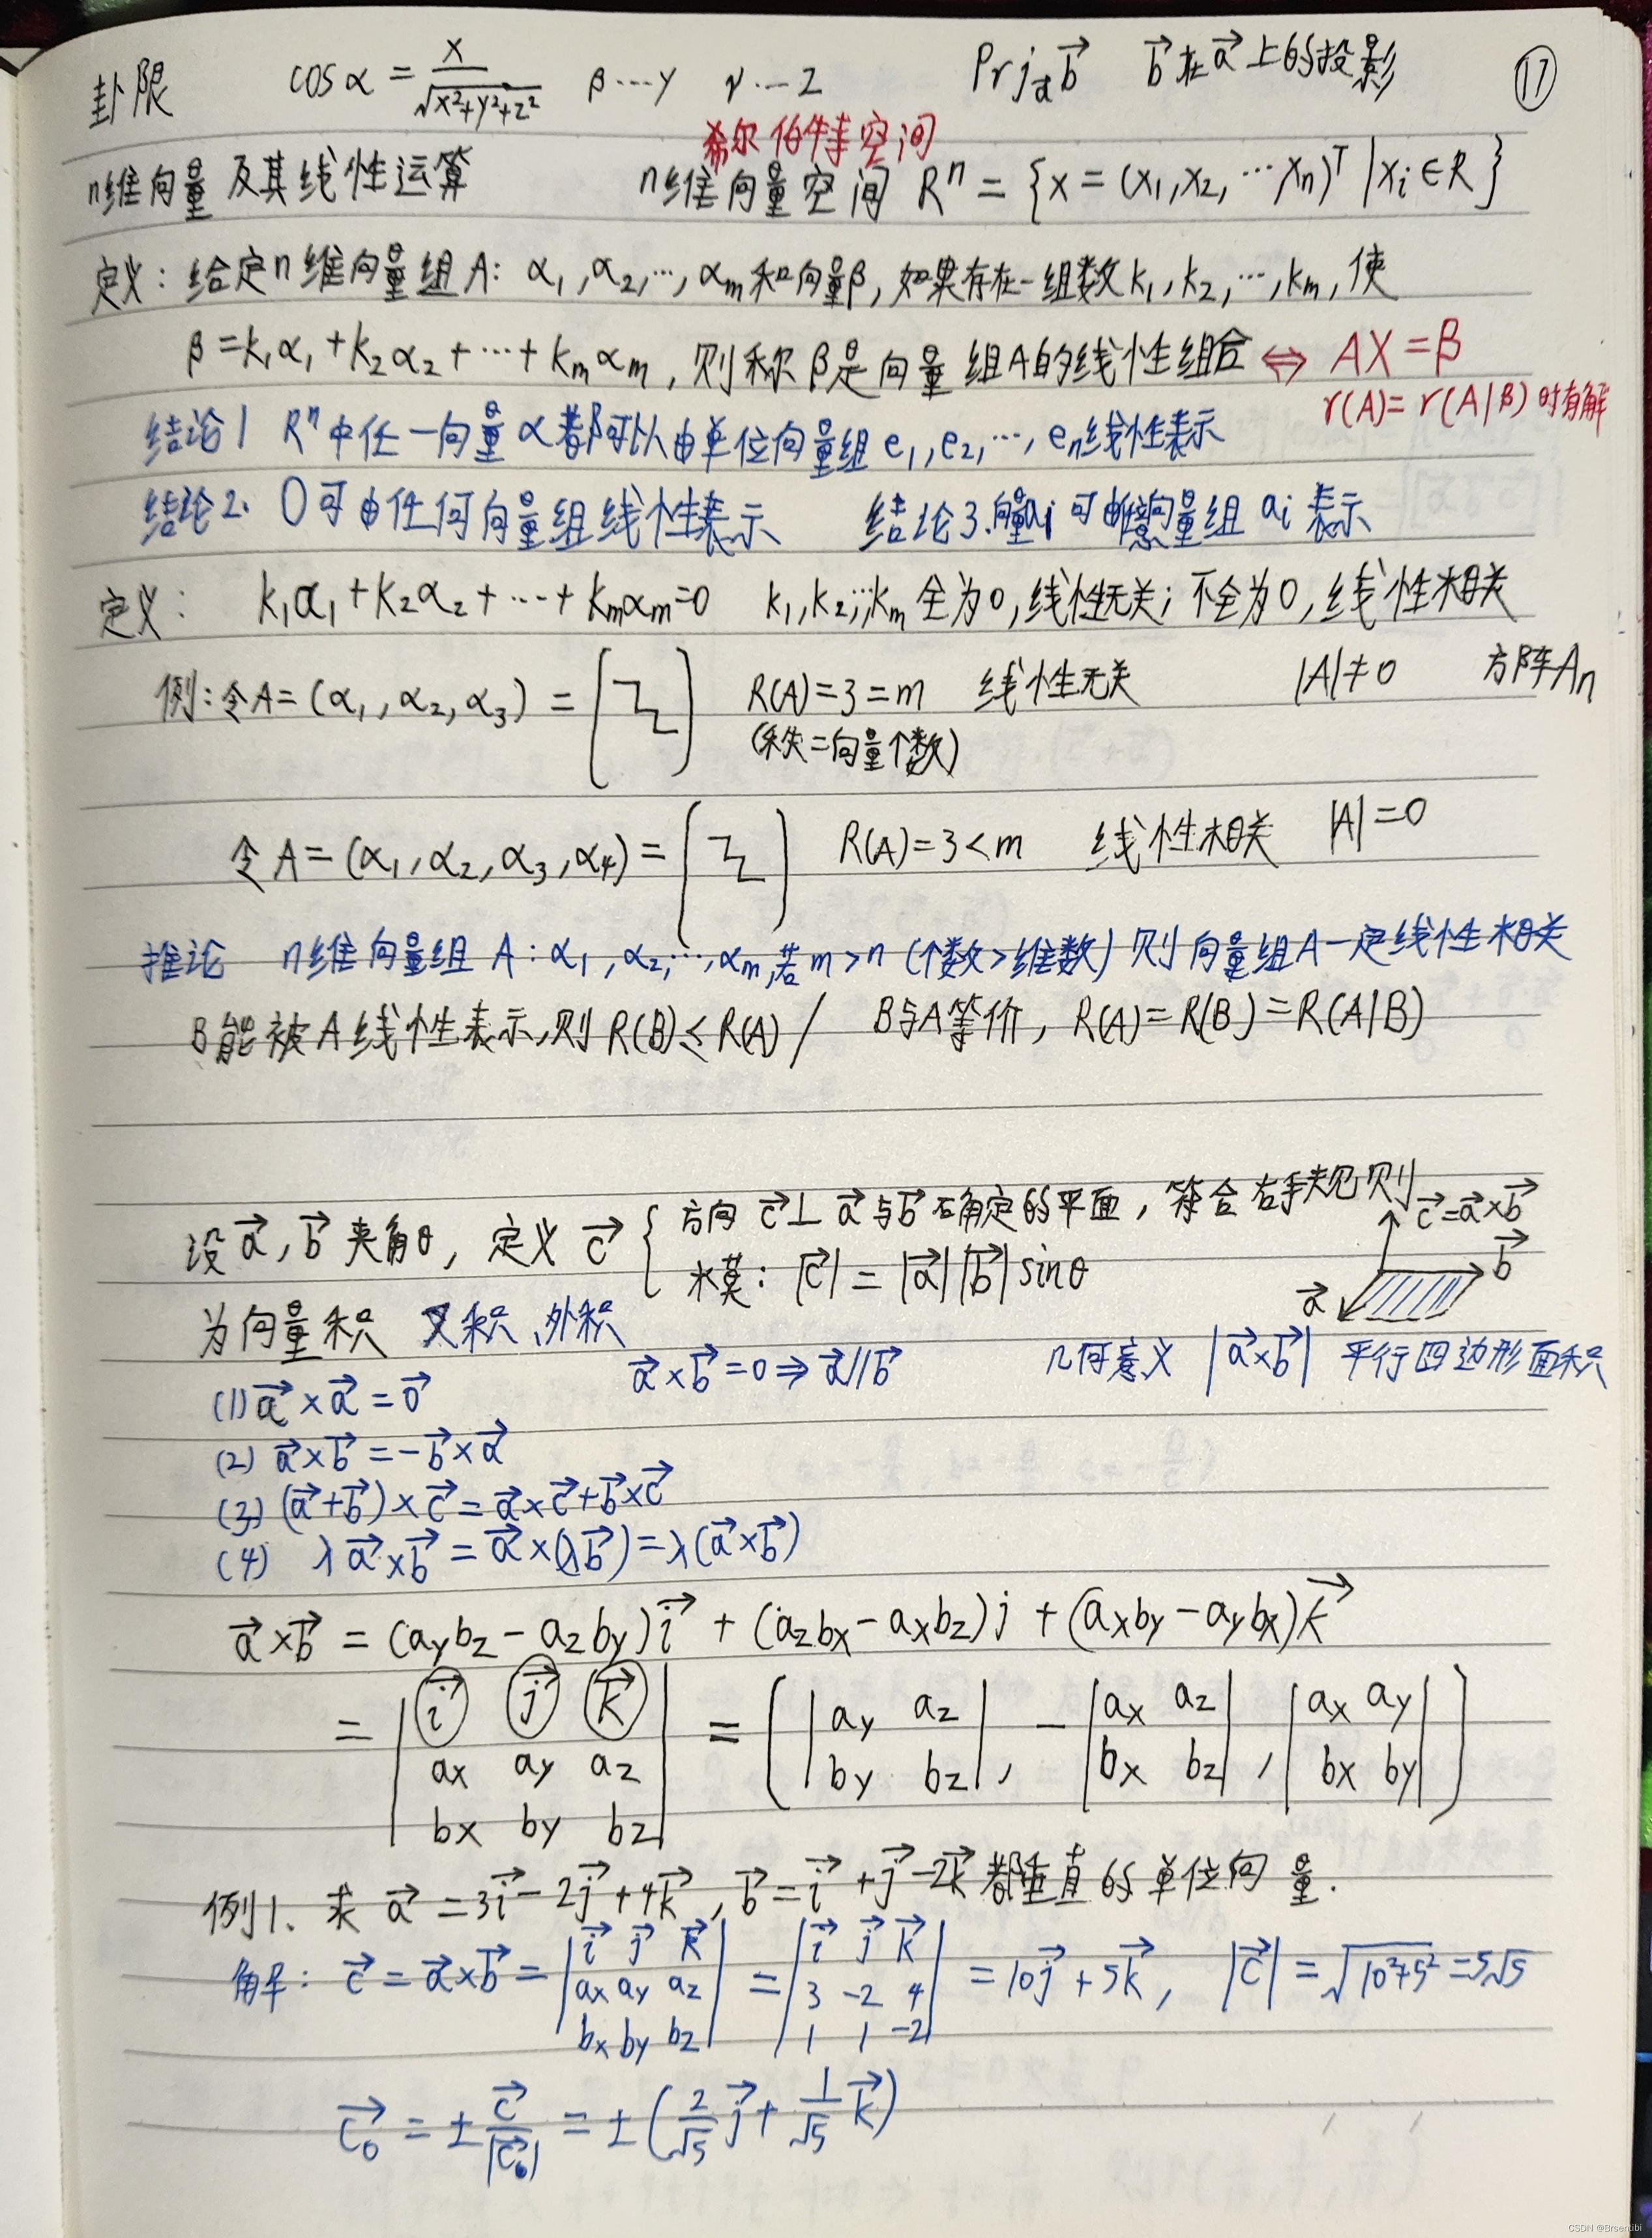 卦限 cosα = x/√(x²+y²+z²) β…y γ…z Prj_a⃗ b⃗ b⃗在a⃗上的投影 ⑰
希尔伯特空间
n维向量及其线性运算 n维向量空间 Rⁿ = {x = (x₁,x₂,…xₙ)ᵀ | xᵢ∈R}
定义: 给定n维向量组A: α₁,α₂,…,αₘ和向量β, 如果存在一组数k₁,k₂,…,kₘ, 使
β=k₁α₁+k₂α₂+…+kₘαₘ, 则称β是向量组A的线性组合 ⇔ AX=β
r(A)=r(A|β)时有解
结论1 Rⁿ中任一向量α都可以由单位向量组e₁,e₂,…,eₙ线性表示
结论2. 0可由任何向量组线性表示 结论3.向量aᵢ可由向量组aᵢ表示
定义: k₁α₁+k₂α₂+…+kₘαₘ=0 k₁,k₂,…kₘ全为0,线性无关; 不全为0,线性相关
例: 令A=(α₁,α₂,α₃)= R(A)=3=m 线性无关 |A|≠0 方阵Aₙ
(秩=向量个数)
令A=(α₁,α₂,α₃,α₄)= R(A)=3<m 线性相关 |A|=0
推论 n维向量组A: α₁,α₂,…,αₘ,若m>n (个数>维数) 则向量组A一定线性相关
B能被A线性表示,则R(B)≤R(A) / B与A等价, R(A)=R(B)=R(A|B)
设a⃗,b⃗夹角θ, 定义c⃗ { 方向 c⃗⊥a⃗与b⃗确定的平面, 符合右手规则
模: |c⃗|=|a⃗||b⃗|sinθ
c⃗=a⃗×b⃗
b⃗
a⃗
为向量积 叉积、外积
a⃗×b⃗=0⇒a⃗∥b⃗ 几何意义 |a⃗×b⃗| 平行四边形面积
(1) a⃗×a⃗=0⃗
(2) a⃗×b⃗=-b⃗×a⃗
(3) (a⃗+b⃗)×c⃗=a⃗×c⃗+b⃗×c⃗
(4) λa⃗×b⃗=a⃗×(λb⃗)=λ(a⃗×b⃗)
a⃗×b⃗ = (a_y b_z - a_z b_y)i⃗ + (a_z b_x - a_x b_z)j + (a_x b_y - a_y b_x)k⃗
= | i⃗ j⃗ k⃗ | = ( | a_y a_z |, - | a_x a_z |, | a_x a_y | )
a_x a_y a_z b_y b_z b_x b_z b_x b_y
b_x b_y b_z
例1. 求 a⃗=3i⃗-2j⃗+4k⃗, b⃗=i⃗+j⃗-2k⃗都垂直的单位向量.
解: c⃗=a⃗×b⃗= | i⃗ j⃗ k⃗ | = | i⃗ j⃗ k⃗ | =10j⃗+5k⃗, |c⃗|=√(10²+5²)=5√5
a_x a_y a_z 3 -2 4
b_x b_y b_z 1 1 -2
c⃗₀ = ± c⃗/|c⃗₀| = ± (2/√5 j⃗ + 1/√5 k⃗)
CSDN @Brsentibi